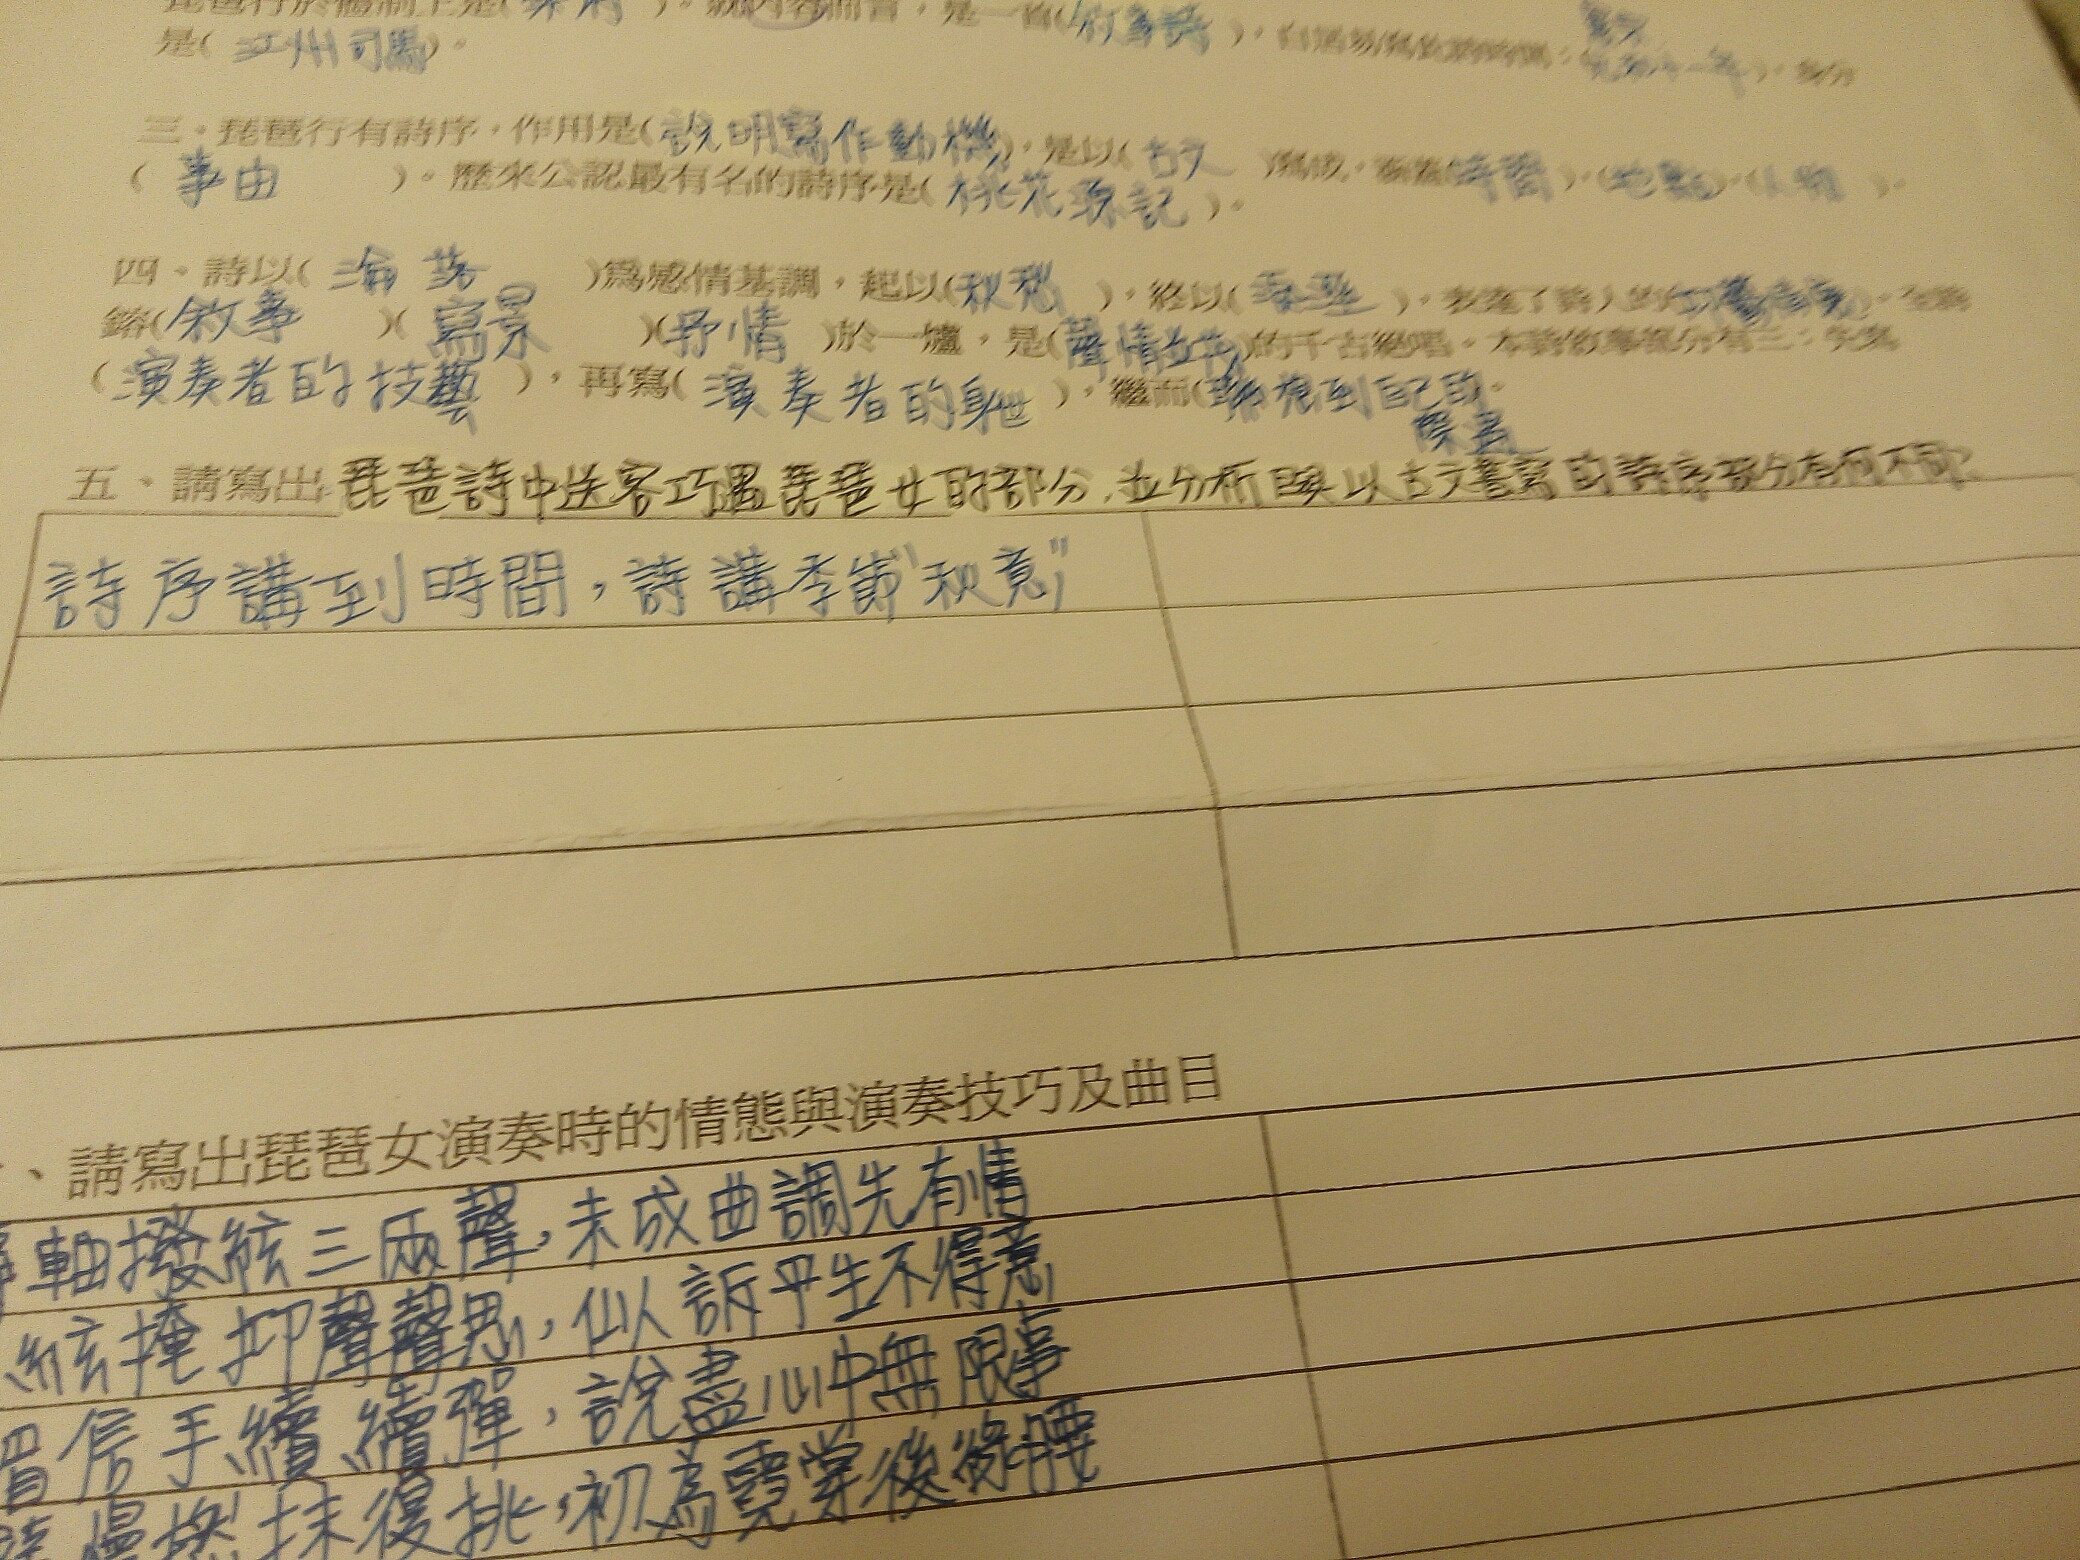 琵琶行於體制上是( )。就內容而言，是一首(敘事詩)，白居易
是(江州司馬)。
三、琵琶行有詩序，作用是(說明寫作動機)，是以(古文)寫成，(時間)、(地點)、(人物)、
(事由)。歷來公認最有名的詩序是(桃花源記)。
四、詩以(淪落)為感情基調，起以(秋愁)，終以(
鎔(敘事)(寫景)(抒情)於一爐，是(聲情並茂)的千古絕唱。本詩敘事部分有三：先寫
(演奏者的技藝)，再寫(演奏者的身世)，繼而(聯想到自己的
際遇
五、請寫出琵琶詩中送客巧遇琵琶女的部分，並分析與以古文書寫的詩序部分有何不同?
詩序講到時間，詩講季節"秋意"
、請寫出琵琶女演奏時的情態與演奏技巧及曲目
軸撥絃三兩聲，未成曲調先有情
絃掩抑聲聲思，似訴平生不得意
眉信手續續彈，說盡心中無限事
慢撚抹復挑，初為霓裳後綠腰